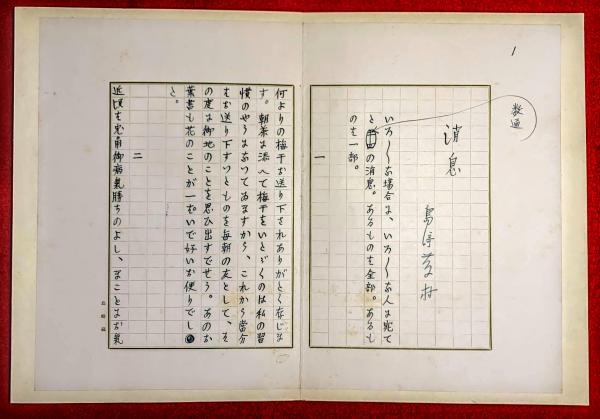 1
数通
消息
島崎藤村
いろ〱な場合に、いろ〱な人に宛て
たの消息。あるものは全部。あるも
のは一部。
一
何よりの梅干お送り下されありがたく存じま
す。朝茶に添へて梅干をいたゞくのは私の習
慣のやうになつてゐますから、これから當分
はお送り下すつたものを毎朝の友として、そ
の度に御地のことを思ひ出すでせう。あのお
葉書も花のことが一ぱいで好いお便りでし
た。
二
近頃は兎角御病氣勝ちのよし、まことにお氣